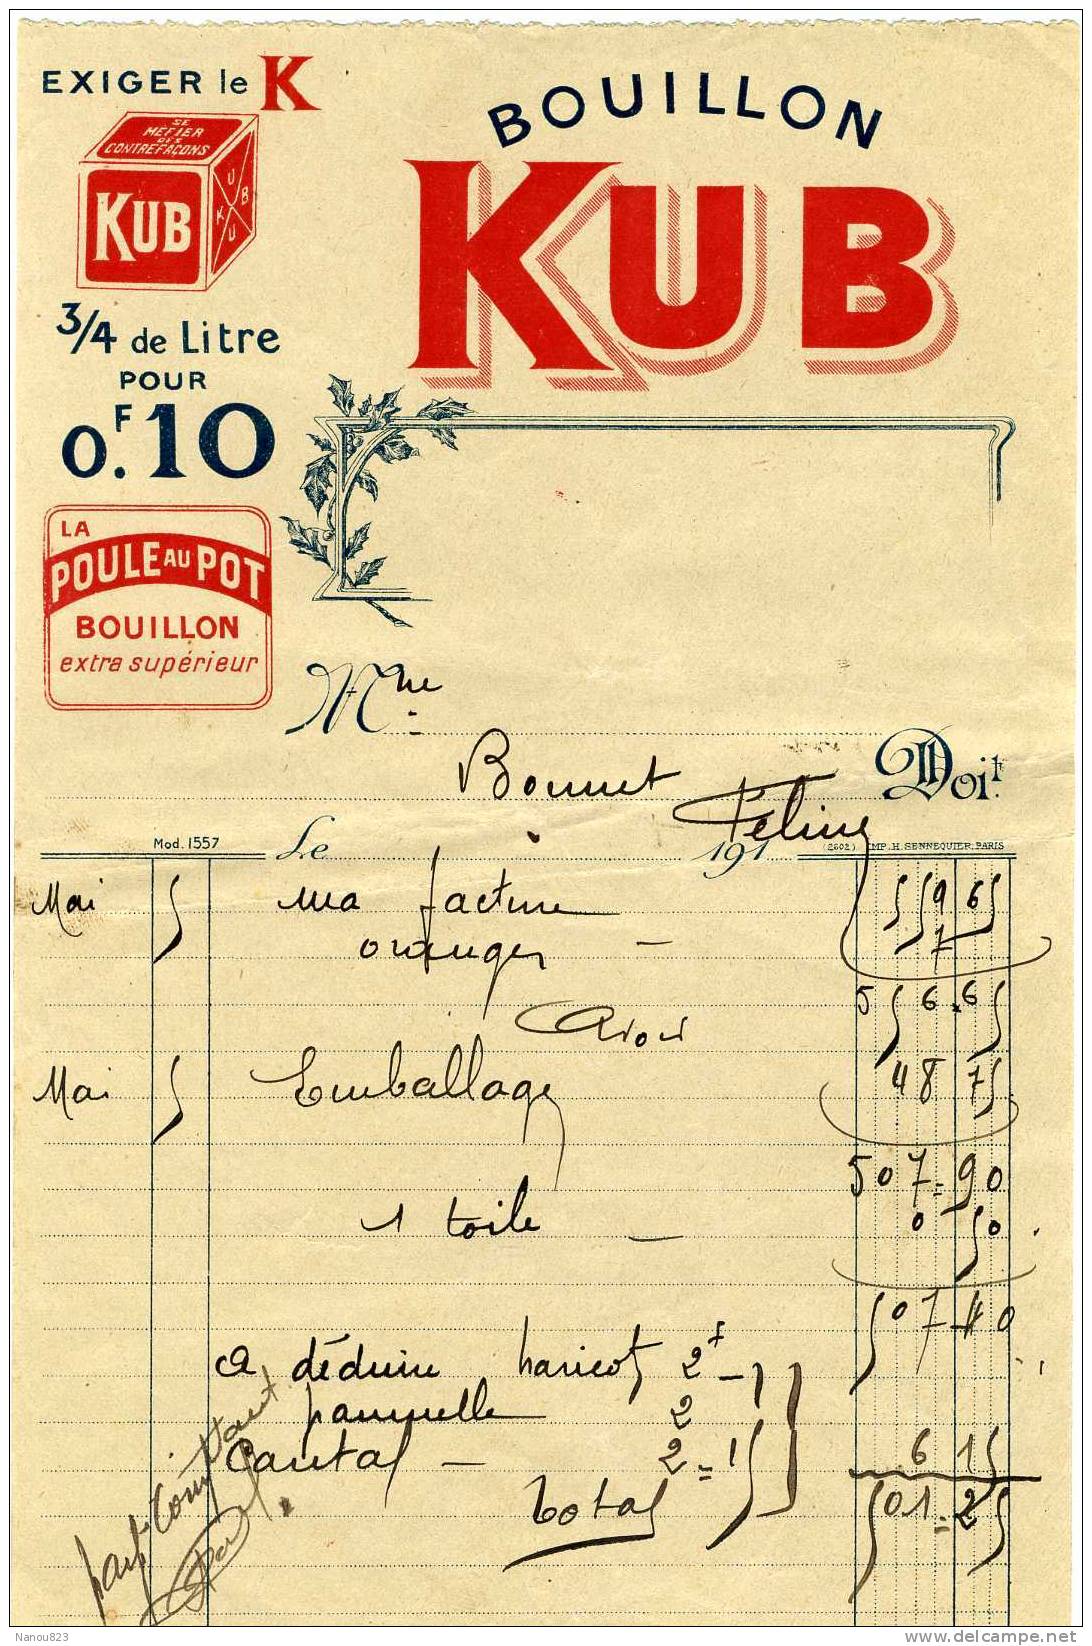 EXIGER le K
SE
MÉFIER
DES
CONTREFAÇONS
KUB
KUB
U
3/4 de Litre
POUR
0F.10
LA
POULE AU POT
BOUILLON
extra supérieur
BOUILLON
KUB
Mme
Bonnet
Doit
Mod. 1557
Le
191
(2602) IMP. H. SENNEQUIER. PARIS
Mai 5 ma facture 559 65
oranges — 7
566.65
Avoir
Mai 5 Emballages 48 75
507=90
1 toile — 0 50
507 40
a déduire haricots 2f —
2
Cantal — 2=15 6 15
Total 501=25
Nanou823
www.delcampe.net